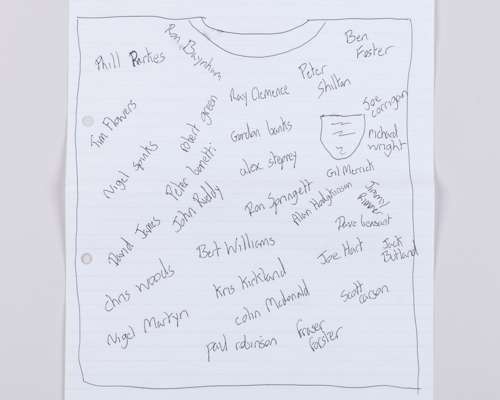 Ron Baynham
Ben
Foster
Phill Parkes
Peter
Shilton
Ray Clemence
Joe
corrigan
Tim Flowers
Robert green
Gordon banks
michael
wright
Nigel spinks
Peter bonetti
alex steprey
Gil Merrick
John Ruddy
Ron Springett
Alan Hodgkinson
Jimmy
Rimmer
David James
Dave beasant
Bert Williams
Joe Hart
Jack
Butland
Chris woods
Kris Kirkland
Scott
carson
Nigel Martyn
colin Mcdonald
paul robinson
fraser
forster